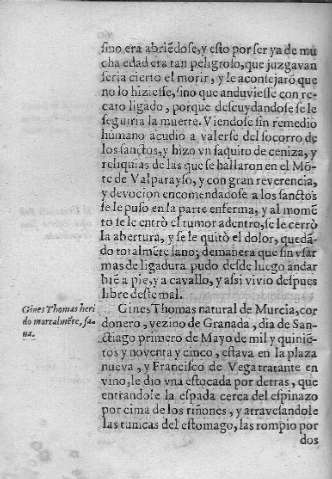 sino era abriẽdose, y esto por ser ya de mu
cha edad era tan peligroso, que juzgavan
seria cierto el morir, y le aconsejarõ que
no lo hiziesse, sino que anduviesse con re-
cato ligado, porque descuydandose se le
seguiria la muerte. Viendose sin remedio
humano acudio a valerse del socorro de
los sanctos, y hizo vn saquito de ceniza, y
reliquias de las que se hallaron en el Mõ-
te de Valparayso, y con gran reverencia,
y devocion encomendãdose a los sanctos
se le puso en la parte enferma, y al momẽ
to se le entrò el tumor adentro, se le cerrò
la abertura, y se le quitò el dolor, quedã-
do totalmẽte sano; demanera que sin vsar
mas de ligadura pudo desde luego andar
biẽ a pie, y a cavallo, y assi vivio despues
libre deste mal.
Gines Thomas heri
do mortalmẽte, sa-
na.
Gines Thomas natural de Murcia, cor
donero, vezino de Granada, dia de San-
ctiago primero de Mayo de mil y quiniẽ-
tos y noventa y cinco, estava en la plaza
nueva, y Francisco de Vega tratante en
vino, le dio vna estocada por detras, que
entrandole la espada cerca del espinazo
por cima de los riñones, y atravesandole
las tunicas del estomago, las rompio por
dos